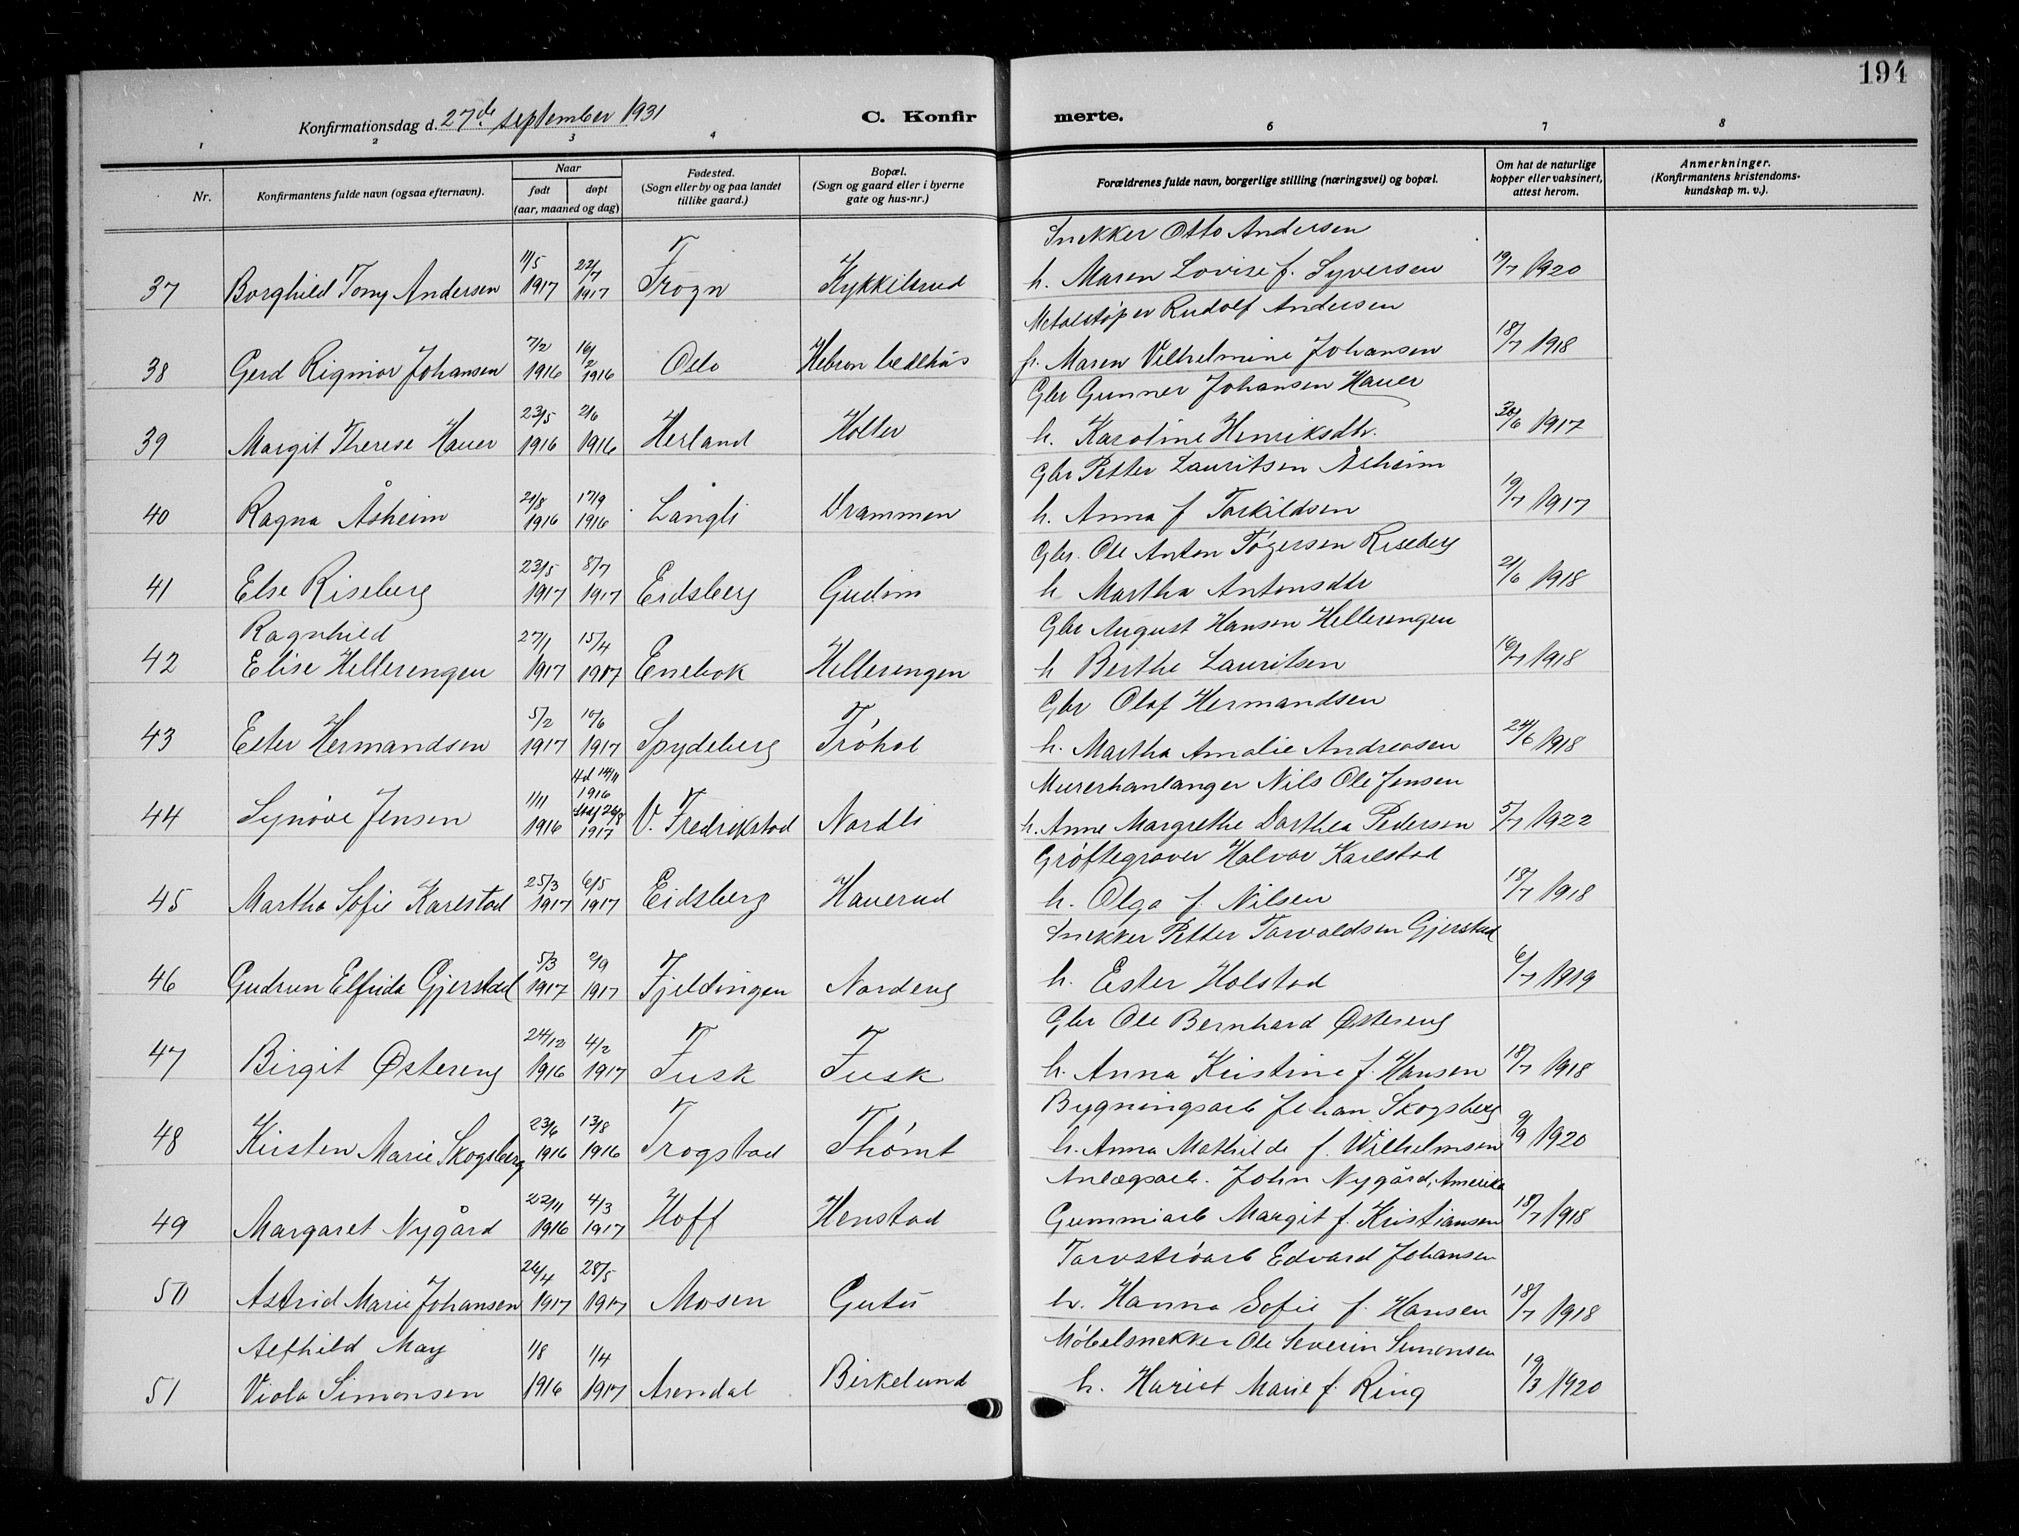 194
Konfirmationsdag d. 27de september 1931
C. Konfirmerte.
1 2 3 4 6 7 8
Nr.
Konfirmantens fulde navn (ogsaa efternavn).
Naar
født
døpt
(aar, maaned og dag)
Fødested.
(Sogn eller by og paa landet
tillike gaard.)
Bopæl.
(Sogn og gaard eller i byerne
gate og hus-nr.)
Forældrenes fulde navn, borgerlige stilling (næringsvei) og bopæl.
Om hat de naturlige
kopper eller vaksinert,
attest herom.
Anmerkninger.
(Konfirmantens kristendoms-
kundskap m. v.).
Snekker Otto Andersen
37 Borghild Tony Andersen 11/5 1917 22/7 1917 Frogn Kykkelsrud h. Maren Lovise f. Syversen 19/7 1920
Metalstøper Rudolf Andersen
38 Gerd Rigmor Johansen 7/2 1916 16/2 1916 Oslo Hebron bedehus fr. Maren Vilhelmine Johansen 18/7 1918
Gbr Gunner Johansen Hauer
39 Margit Therese Hauer 23/5 1916 2/6 1916 Herland Holter h. Karoline Henriksdtr. 30/6 1917
Gbr Petter Lauritsen Åsheim
40 Ragna Åsheim 21/8 1916 17/9 1916 Langli Drammen h. Anna f Torkildsen 19/7 1917
Gbr. Ole Anton Tøgersen Riseberg
41 Else Riseberg 23/5 1917 8/7 1917 Eidsberg Gudim h Martha Antonsdtr 21/6 1918
Ragnhild Gbr August Hansen Hellerengen
42 Elise Hellerengen 27/1 1917 15/4 1917 Enebok Hellerengen h Berthe Lauritsen 16/7 1918
Gbr Olaf Hermandsen
43 Ester Hermandsen 5/2 1917 10/6 1917 Spydeberg Frøhol h. Martha Amalie Andreasen 24/6 1918
Murerhanlanger Nils Ole Jensen
44 Synøve Jensen 1/11 1916 4d 14/11 1916 Stadf 26/8 1917 V. Fredrikstad Nordli h. Anne Margrethe Dorthea Pedersen 5/7 1922
Grøftegraver Halvor Karlstad
45 Martha Sofie Karlstad 25/3 1917 6/5 1917 Eidsberg Hauerud h. Olga f. Nilsen 18/7 1918
Snekker Petter Torvaldsen Gjerstad
46 Gudrun Elfrida Gjerstad 5/3 1917 2/9 1917 Fjeldingen Nordeng h. Ester Holstad 6/7 1919
Gbr Ole Bernhard Østereng
47 Birgit Østereng 24/12 1916 4/2 1917 Fusk Fusk h. Anna Kristine f. Hansen 18/7 1918
Bygningsarb Johan Skogsberg
48 Kirsten Marie Skogsberg 23/6 1916 13/8 1916 Trogstad Thømt h. Anna Mathilde f. Wilhelmsen 9/9 1920
Anlægsarb. John Nygård, Amerika
49 Margaret Nygård 22/11 1916 4/3 1917 Hoff Henstad Gummiarb Margit f. Kristiansen 18/7 1918
Torvstrøarb Edvard Johansen
50 Astrid Marie Johansen 26/4 1917 28/5 1917 Mosen Gutu h. Hanna Sofie f. Hansen 18/7 1918
Alfhild May Møbelsnekker Ole Severin Simonsen
51 Viola Simonsen 1/8 1916 1/4 1917 Arendal Birkelund h. Hariet Marie f. Ring 19/3 1920